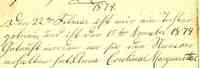 1879.
Den 22ten Februar ist mir ein Tochter
geboren und ist den 15ten Monats 1879
getauft worden sie hat den Namen
erhalten Caroline Margaretha